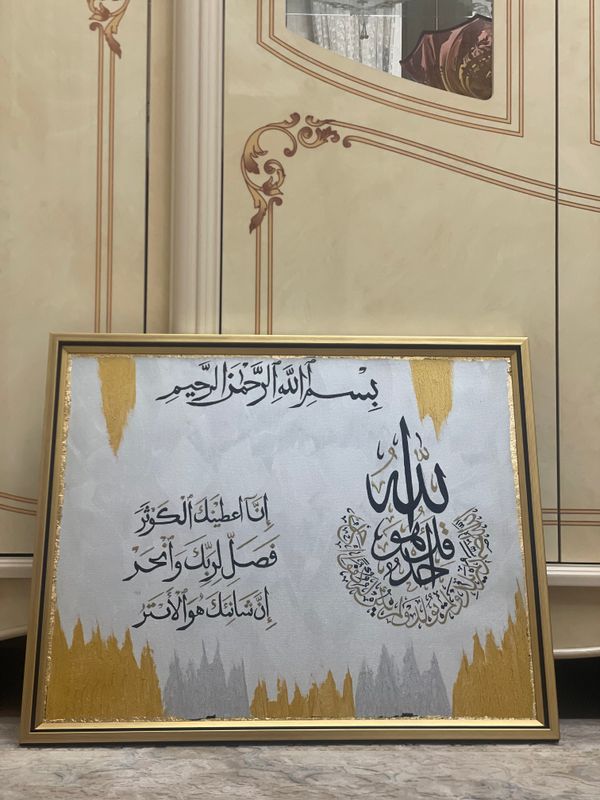 بِسْمِ ٱللَّهِ ٱلرَّحْمَٰنِ ٱلرَّحِيمِ
إِنَّآ أَعْطَيْنَٰكَ ٱلْكَوْثَرَ
فَصَلِّ لِرَبِّكَ وَٱنْحَرْ
إِنَّ شَانِئَكَ هُوَ ٱلْأَبْتَرُ
قل هو الله احد